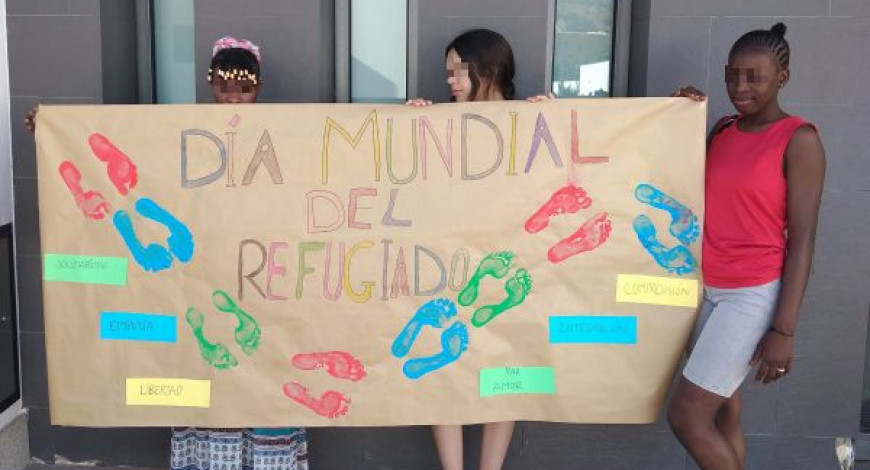 DÍA MUNDIAL
DEL
REFUGIADO
SOLIDARIDAD
EMPATÍA
LIBERTAD
PAZ
AMOR
INTEGRACIÓN
COMPRENSIÓN